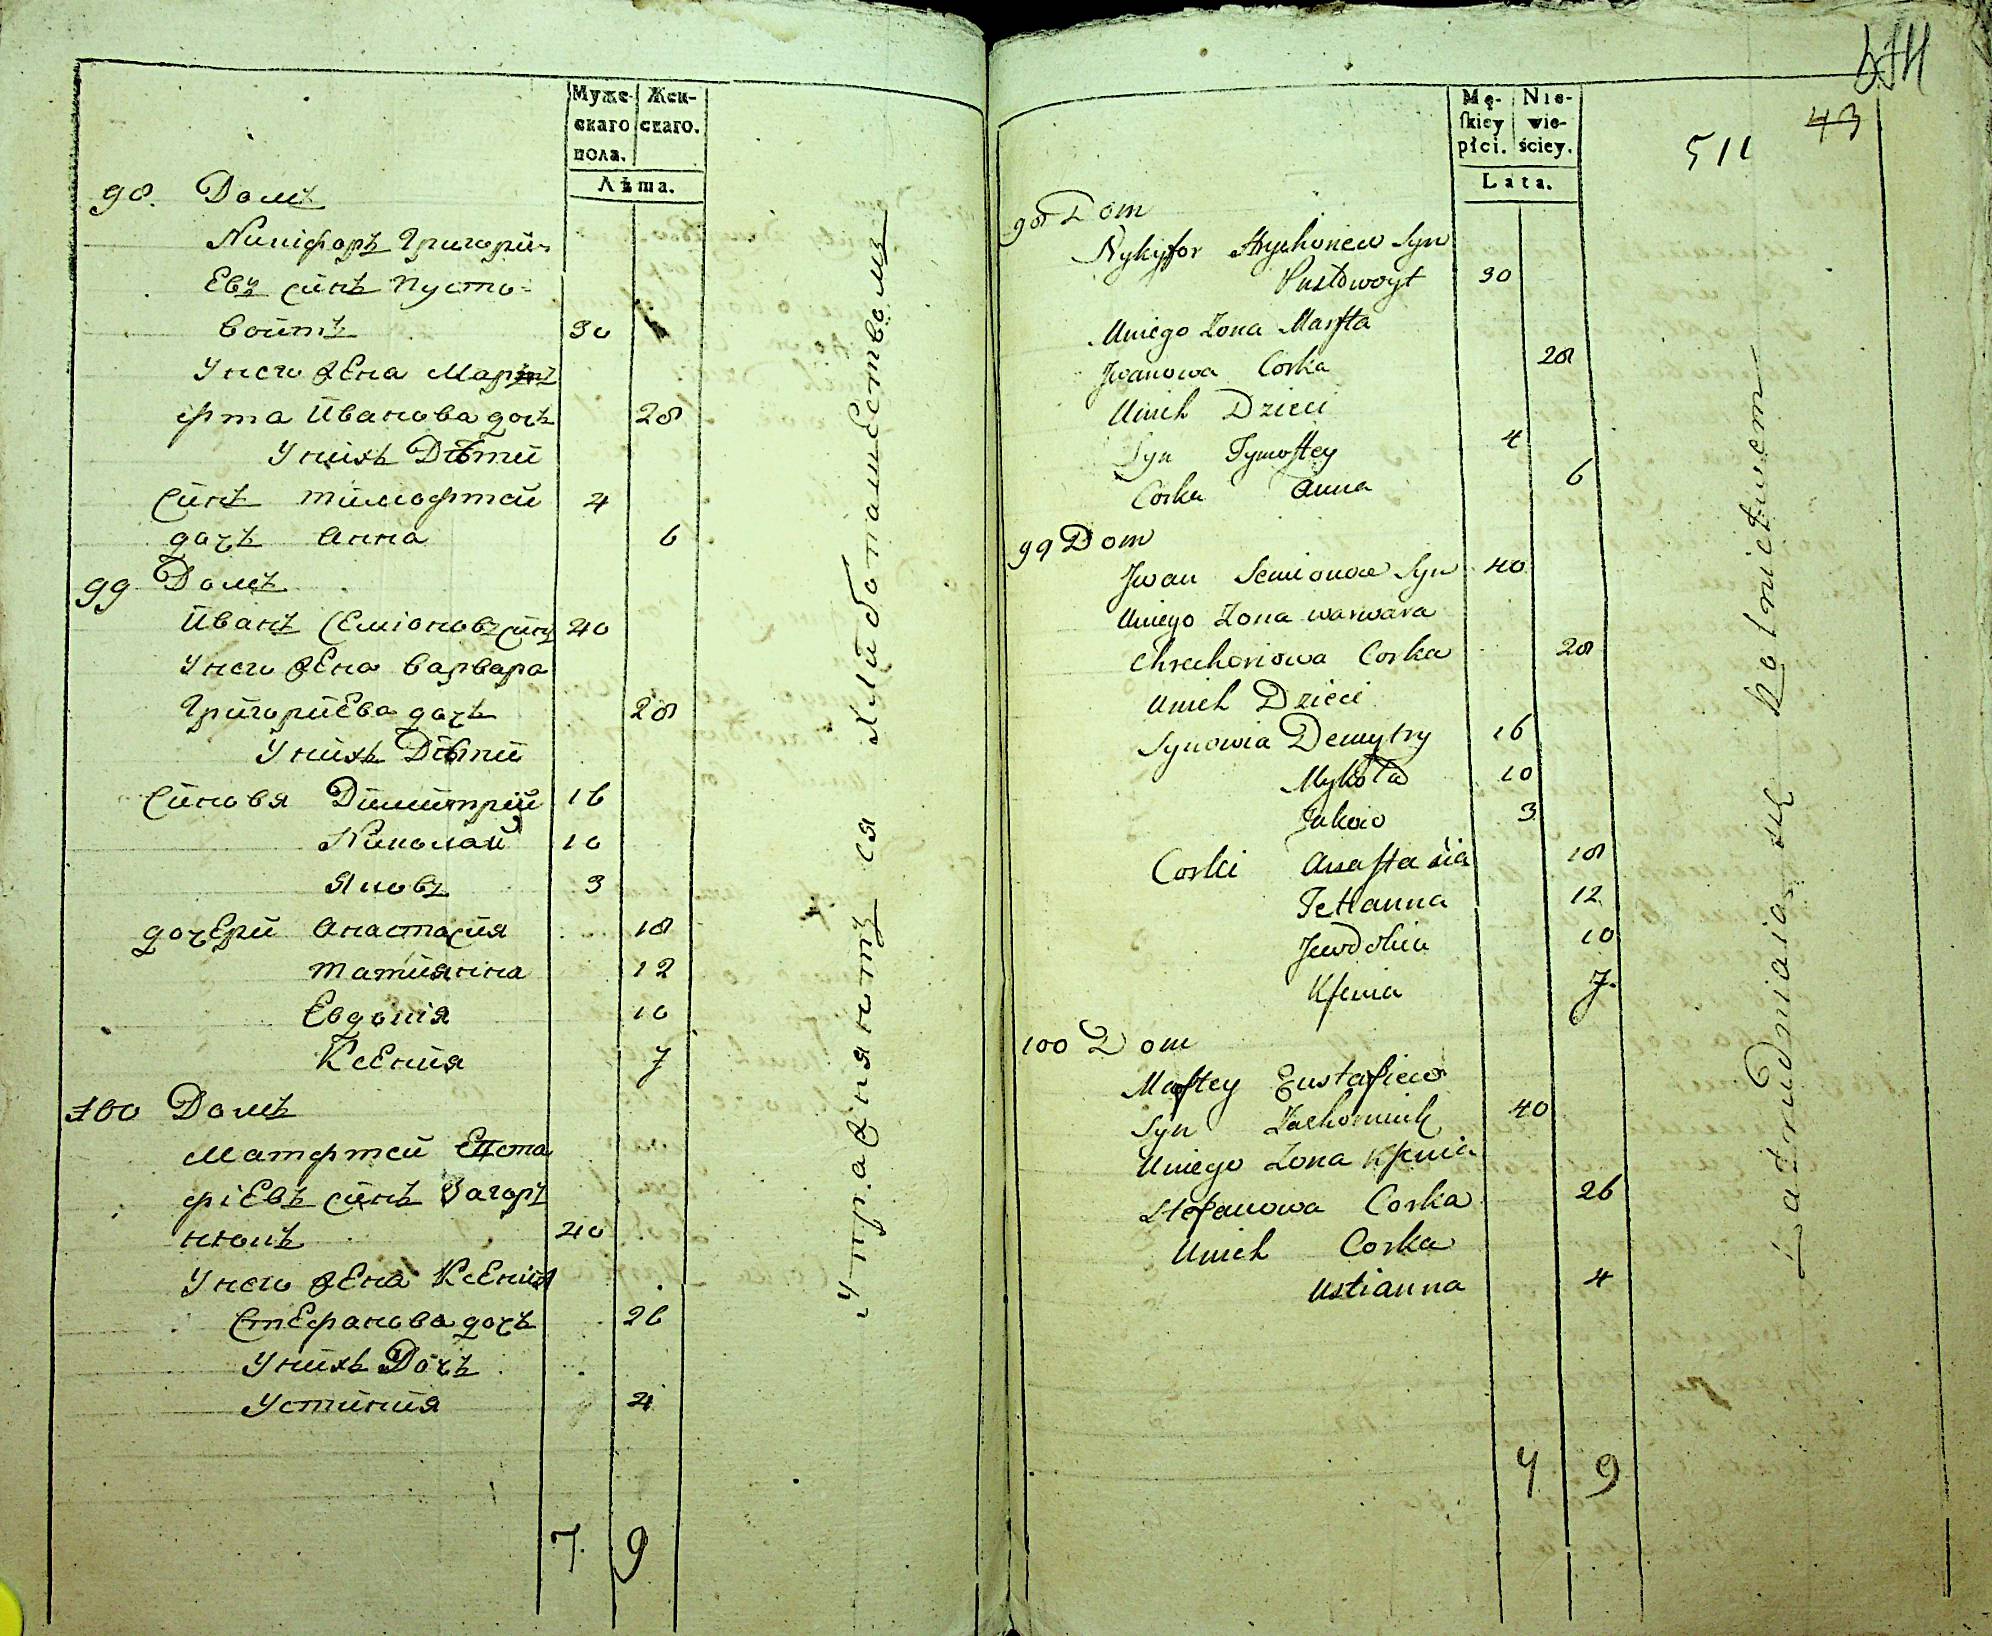 Муже-
скаго
пола.
Жен-
скаго.
Лѣта.
98. Домъ
Никіфоръ Григорій-
Евъ синъ Пусто-
войтъ 30
У него жена Мар
фта Иванова дочь 28
У нихъ Дѣти
Синъ Тимофтей 4
дочь Анна 6
99 Домъ
Иванъ Семіоновъ синъ 40
У него жена Варвара
Григориева дочь 28
У нихъ Дѣти
Синовя Димитрій 16
Николай 10
Яковъ 3
дочери Анастасия 18
Татиянна 12
Евдокія 10
Ксения 7
100 Домъ
Матфтей Еуста
фіевъ синъ Загор
нюкъ 40
У него жена Ксения
Стефанова дочь 26
У нихъ Дочь
Устиния 4
7. 9
Упражняютъ ся Хлиботашествомъ
Mę-
skiey
płci.
Nie-
wie-
ściey.
Lata.
644
43
511
98 Dom
Nykyfor Hryhoriew Syn
Pustowoyt 30
Uniego Zona Marfta
Jwanowa Corka 28
Unich Dzieci
Syn Tymoftey 4
Corka Anna 6
99 Dom
Jwan Semionow Syn 40
Uniego Zona warwara
Chrechoriowa Corka 28
Unich Dzieci
Synowia Demytry 16
Mykoła 10
Jakow 3
Corki Anastasia 18
Tetianna 12
Jewdokia 10
Ksenia 7.
100 Dom
Maftey Eustafiew
Syn Zachorniuk 40
Uniego Zona Ksenia
Stefanowa Corka 26
Unich Corka
Ustianna 4
7 9
Zatrudniaia się Rolnictwem